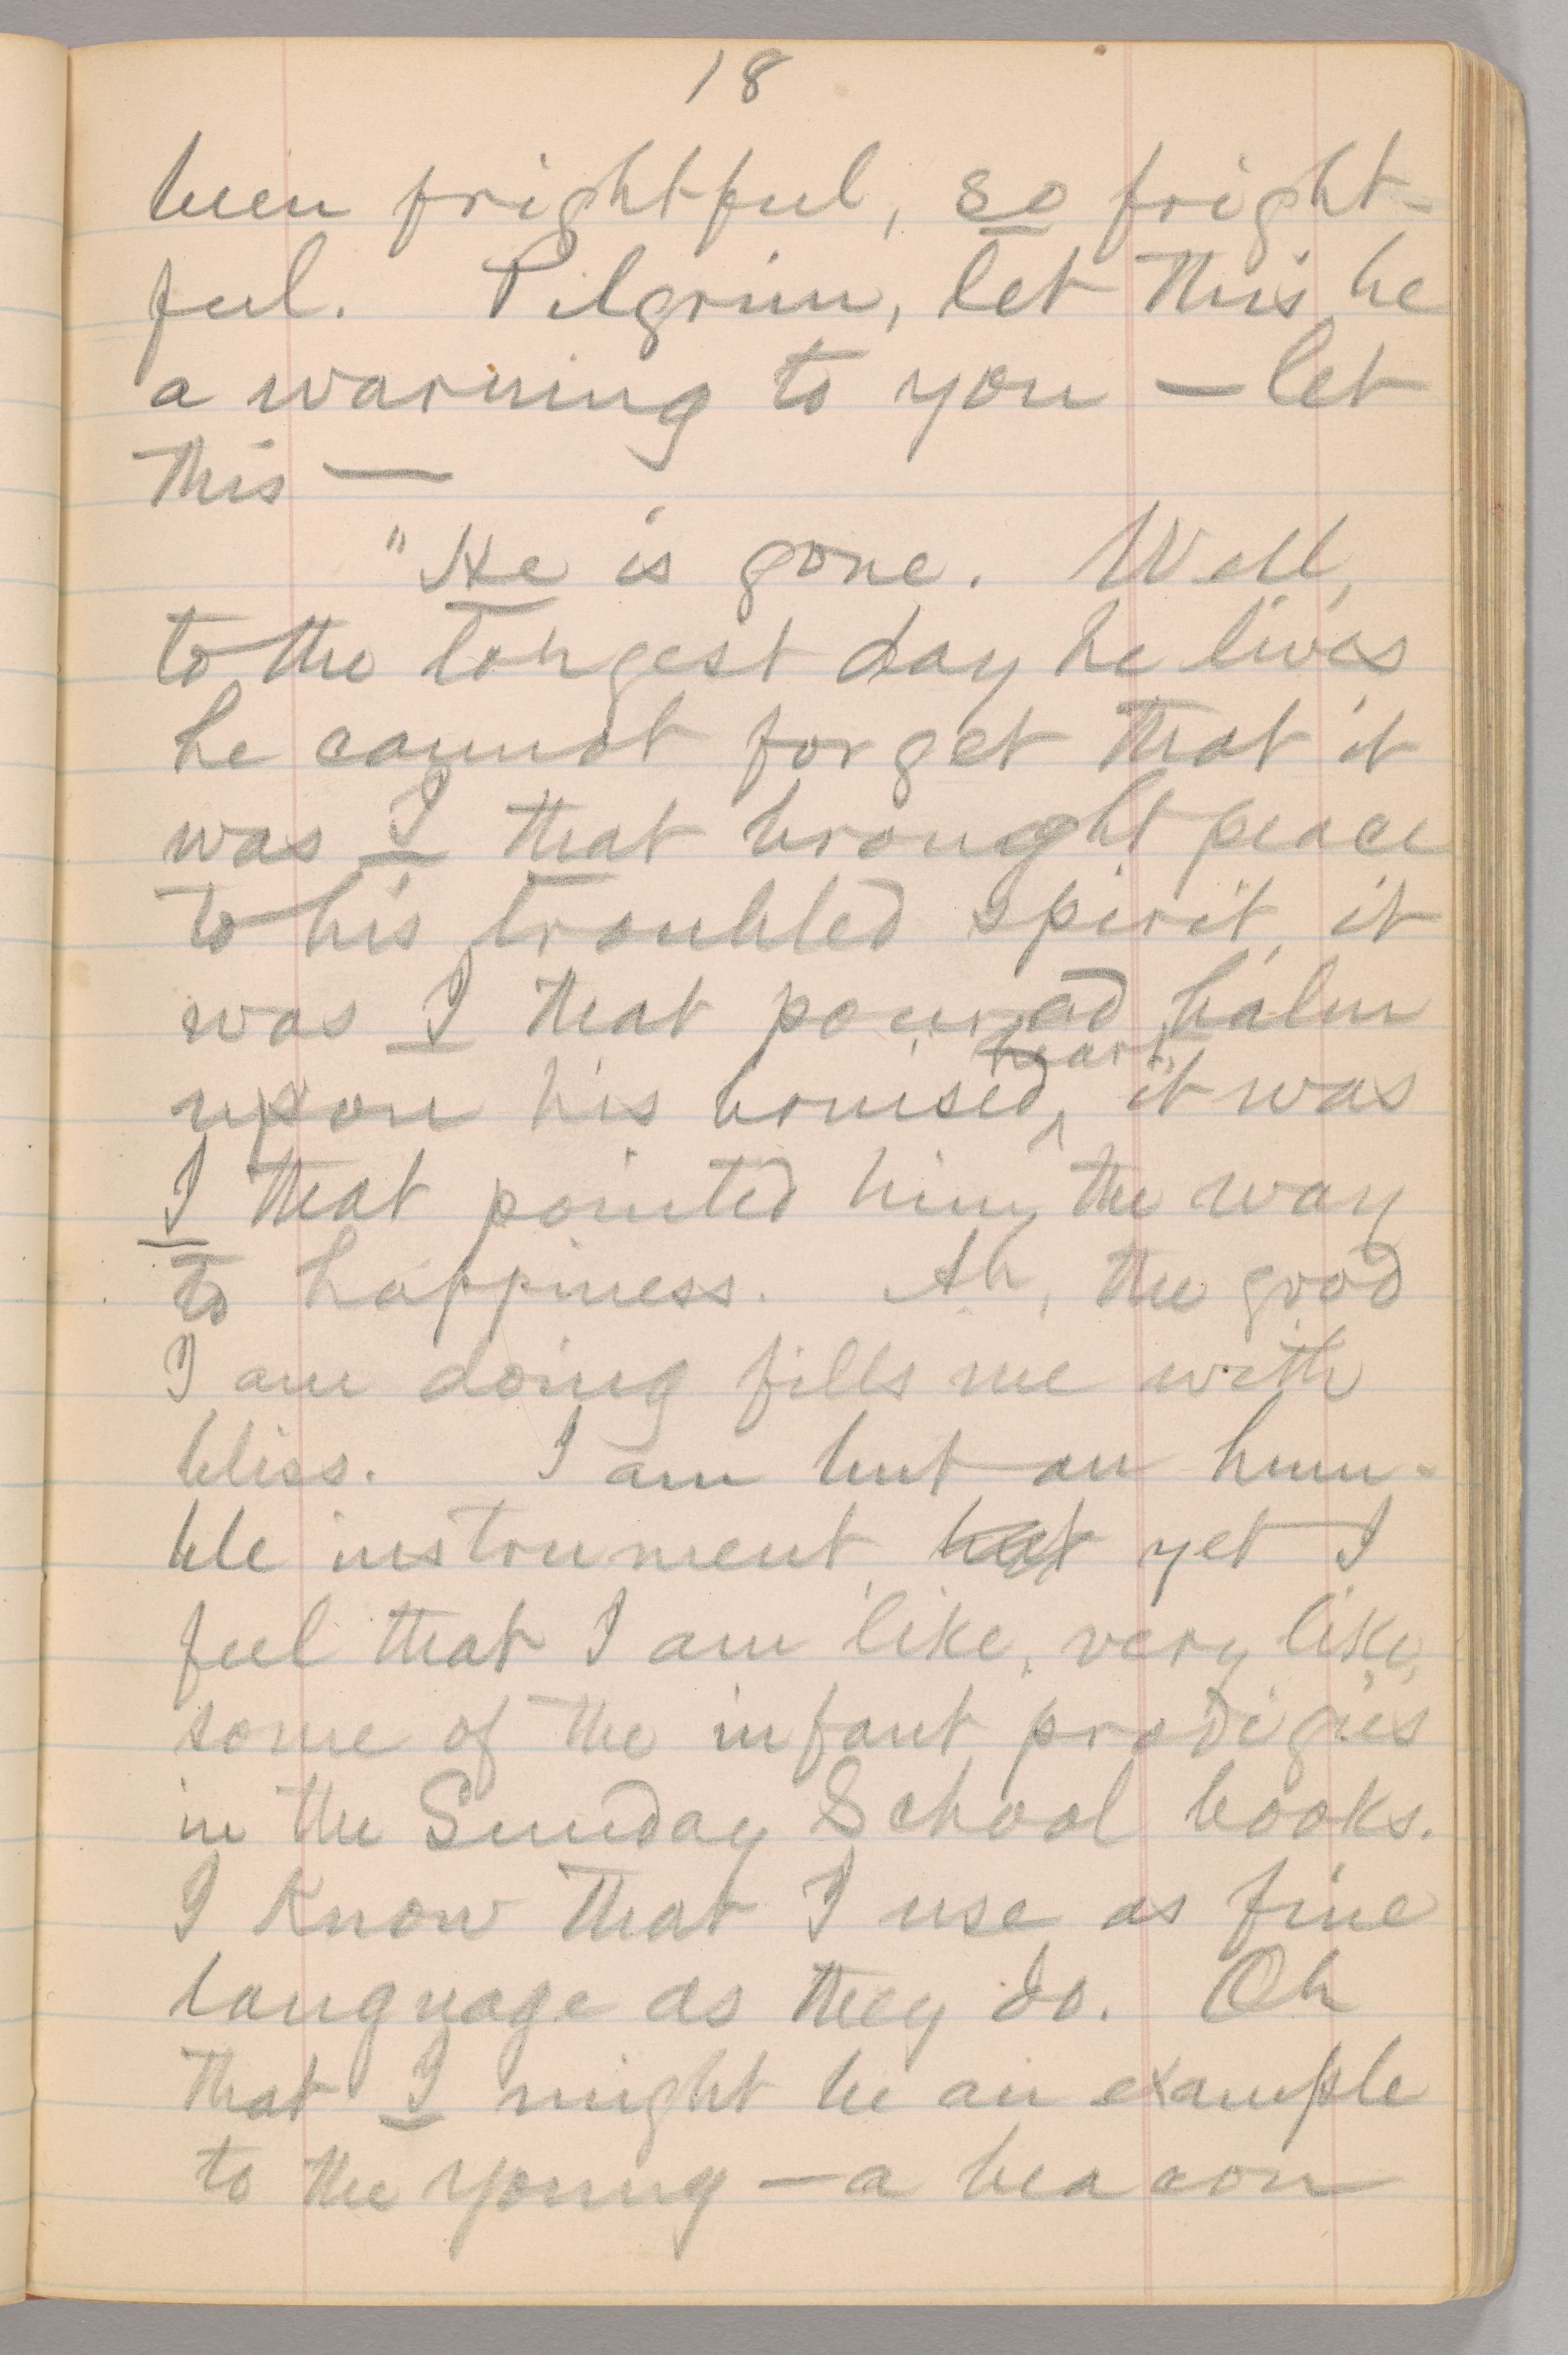 18
been frightful, so fright-
ful. Pilgrim, let this be
a warning to you — let
this —
"He is gone. Well,
to the longest day he lives
he cannot forget that it
was I that brought peace
to his troubled spirit, it
was I that poured balm
heart,
upon his bruised, it was
I that pointed him the way
to happiness. Ah, the good
I am doing fills me with
bliss. I am but an hum-
ble instrument, but yet I
feel that I am like, very like,
some of the infant prodigies
in the Sunday School books.
I know that I use as fine
language as they do. Oh
that I might be an example
to the young — a beacon